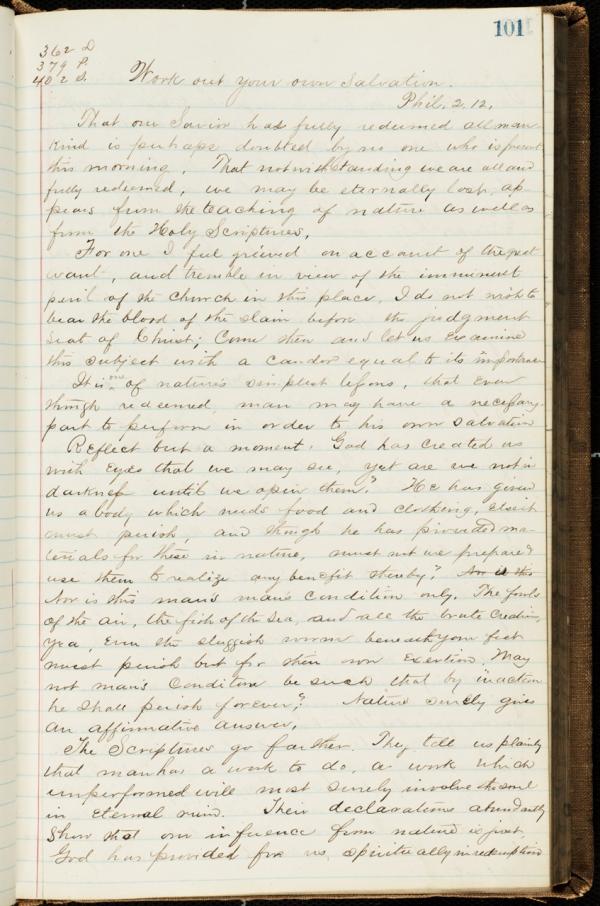 101
362 D
379 P.
402 S.
Work out your own Salvation.
Phil. 2. 12.
That our Savior has fully redeemed all man-
kind is perhaps doubted by no one who is present
this morning. That notwithstanding we are all and
fully redeemed, we may be eternally lost, ap
pears from the teaching of nature as well as
from the Holy Scriptures.
For one I feel grieved on account of the great
want, and tremble in view of the imminent
peril of the church in this place. I do not wish to
bear the blood of the slain before the judgment
seat of Christ; Come then and let us examine
this subject with a candor equal to its importance
It is one of nature's simplest lessons, that even
though redeemed, man may have a necessary
part to perform in order to his own salvation
Reflect but a moment. God has created us
with eyes that we may see, yet are we not in
darkness until we open them? He has given
us a body which needs food and clothing, else it
must perish, and though he has provided ma-
terials for these in nature, must not we prepare &
use them to realize any benefit thereby? Nor is this
Nor is this man's man's condition only. The fowls
of the air, the fish of the sea, and all the brute creation,
yea, even the sluggish worm beneath your feet
must perish but for their own exertion. May
not man's condition be such that by inaction
he shall perish forever? Nature surely gives
an affirmative answer.
The Scriptures go farther. They tell us plainly
that man has a work to do, a work which
unperformed will most surely involve the soul
in eternal ruin. Their declarations abundantly
show that our inference from nature is just.
God has provided for us, spiritually in redemption